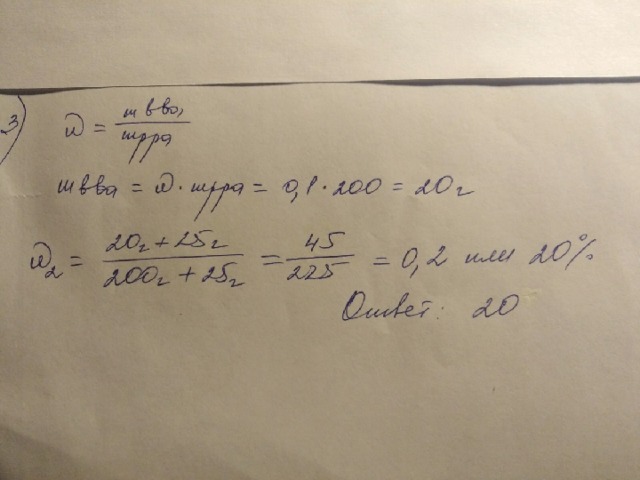 3) ω = mвва / mрра
mвва = ω · mрра = 0,1 · 200 = 20г
ω₂ = 20г + 25г / 200г + 25г = 45 / 225 = 0,2 или 20%
Ответ: 20